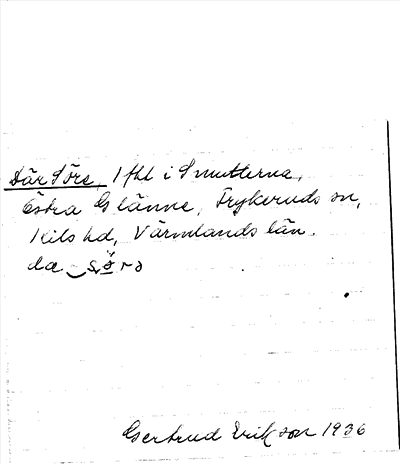 Där Söre, 1 fhl i Smutterna,
Östra Glänne, Frykeruds sn,
Kils hd, Värmlands län.
da sörə
Gertrud Erikson 1936